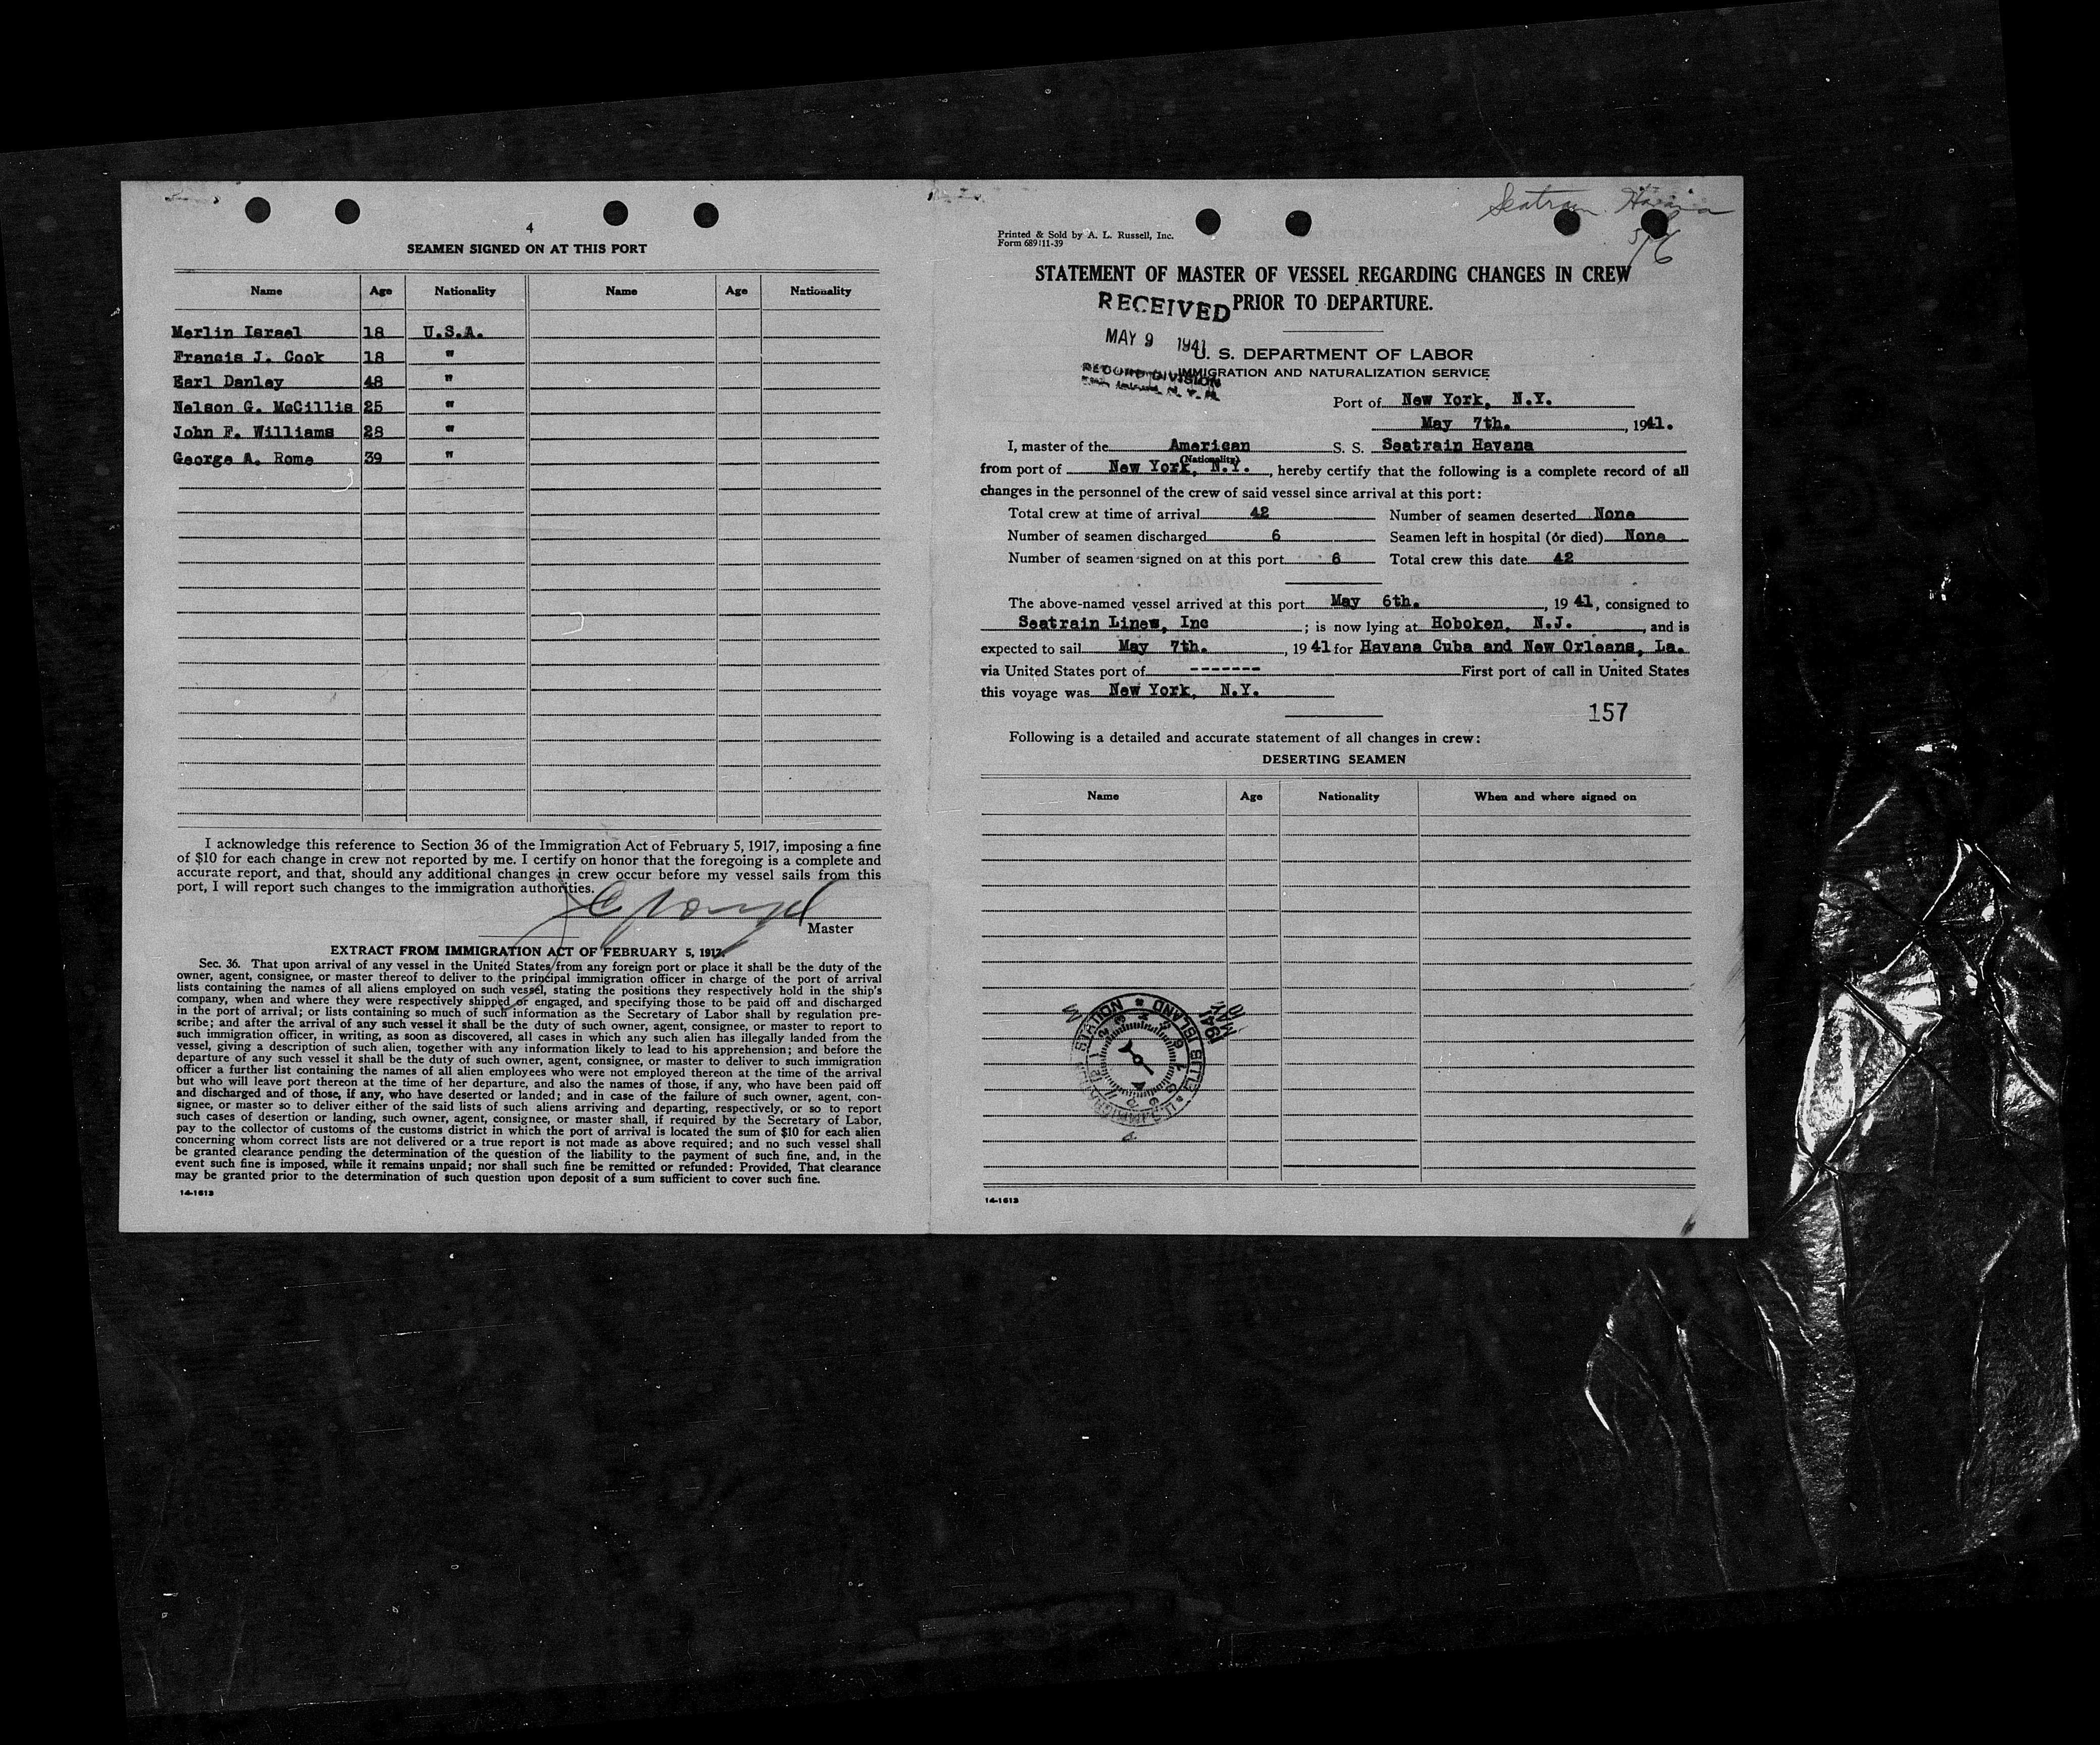 4
SEAMEN SIGNED ON AT THIS PORT
Name Age Nationality Name Age Nationality
Merlin Israel 18 U.S.A.
Francis J. Cook 18 "
Earl Danley 48 "
Nelson G. McCillis 25 "
John F. Williams 28 "
George A. Rome 39 "
I acknowledge this reference to Section 36 of the Immigration Act of February 5, 1917, imposing a fine
of $10 for each change in crew not reported by me. I certify on honor that the foregoing is a complete and
accurate report, and that, should any additional changes in crew occur before my vessel sails from this
port, I will report such changes to the immigration authorities.
Master
EXTRACT FROM IMMIGRATION ACT OF FEBRUARY 5, 1917.
Sec. 36. That upon arrival of any vessel in the United States from any foreign port or place it shall be the duty of the
owner, agent, consignee, or master thereof to deliver to the principal immigration officer in charge of the port of arrival
lists containing the names of all aliens employed on such vessel, stating the positions they respectively hold in the ship's
company, when and where they were respectively shipped or engaged, and specifying those to be paid off and discharged
in the port of arrival; or lists containing so much of such information as the Secretary of Labor shall by regulation pre-
scribe; and after the arrival of any such vessel it shall be the duty of such owner, agent, consignee, or master to report to
such immigration officer, in writing, as soon as discovered, all cases in which any such alien has illegally landed from the
vessel, giving a description of such alien, together with any information likely to lead to his apprehension; and before the
departure of any such vessel it shall be the duty of such owner, agent, consignee, or master to deliver to such immigration
officer a further list containing the names of all alien employees who were not employed thereon at the time of the arrival
but who will leave port thereon at the time of her departure, and also the names of those, if any, who have been paid off
and discharged and of those, if any, who have deserted or landed; and in case of the failure of such owner, agent, con-
signee, or master so to deliver either of the said lists of such aliens arriving and departing, respectively, or so to report
such cases of desertion or landing, such owner, agent, consignee, or master shall, if required by the Secretary of Labor,
pay to the collector of customs of the customs district in which the port of arrival is located the sum of $10 for each alien
concerning whom correct lists are not delivered or a true report is not made as above required; and no such vessel shall
be granted clearance pending the determination of the question of the liability to the payment of such fine, and, in the
event such fine is imposed, while it remains unpaid; nor shall such fine be remitted or refunded: Provided, That clearance
may be granted prior to the determination of such question upon deposit of a sum sufficient to cover such fine.
14-1613
Seatrain Havana
5/6
Printed & Sold by A. L. Russell, Inc.
Form 689 11-39
STATEMENT OF MASTER OF VESSEL REGARDING CHANGES IN CREW
PRIOR TO DEPARTURE.
RECEIVED
MAY 9 1941
RECORD DIVISION
U. S. DEPARTMENT OF LABOR
IMMIGRATION AND NATURALIZATION SERVICE
Port of New York, N.Y.
May 7th. , 1941.
I, master of the American S. S. Seatrain Havana
(Nationality)
from port of New York, N.Y. , hereby certify that the following is a complete record of all
changes in the personnel of the crew of said vessel since arrival at this port:
Total crew at time of arrival 42 Number of seamen deserted None
Number of seamen discharged 6 Seamen left in hospital (or died) None
Number of seamen signed on at this port 6 Total crew this date 42
The above-named vessel arrived at this port May 6th. , 19 41, consigned to
Seatrain Lines, Inc ; is now lying at Hoboken, N.J. , and is
expected to sail May 7th. , 19 41 for Havana Cuba and New Orleans, La.
via United States port of ------- First port of call in United States
this voyage was New York, N.Y.
157
Following is a detailed and accurate statement of all changes in crew:
DESERTING SEAMEN
Name Age Nationality When and where signed on
ELLIS ISLAND STATION
MAY
1941
14-1613